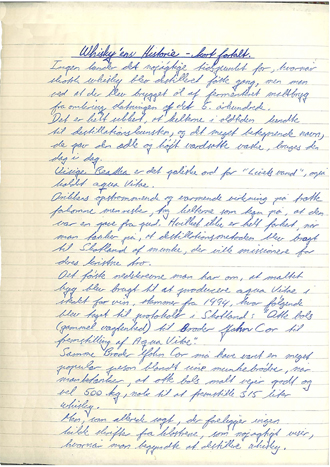 Whisky'ens Historie - kort fortalt.
Ingen kender det nøjagtige tidspunkt for, hvornår
skotsk whisky blev destilleret første gang, men man
ved at der blev brygget øl af
omkring slutningen af det
Det er helt sikkert, at kelterne i oldtiden kendte
til destillationskunsten, og det meget betegnende navn,
de gav den ædle og højt værdsatte væske, bruges den
dag i dag.
Uisige Beatha er det gæliske ord for "Livets vand", også
kaldt aqua Vitae.
Ordets opstrammende og varmende virkning på trætte
mennesker, fik kelterne som tegn på, at den
var en gave fra gud. Hvilket ikke er helt forkert, når
man tænker på, at destillationsmetoden blev bragt
til Skotland af munke, der var missionære for
deres kristne tro.
Det første man har om, at maltet
byg blev brugt til at producere aqua Vitae i
stedet for vin, stammer fra 1494, hvor følgende
blev taget til protokols i Skotland: "Otte bols
(gammel vægtenhed) til Broder John Cor til
fremstilling af Aqua Vitae".
Samme Broder John Cor må have været en meget
populær person blandt sine munkebrødre, når
man at otte bols malt vejer godt og
vel 500 kg, nok til at fremstille 315 liter
whisky.
Men, som allerede sagt, der foreligger ingen
skrifter fra klostrene, som nøjagtigt viser,
hvornår man begyndte at destillere whisky.